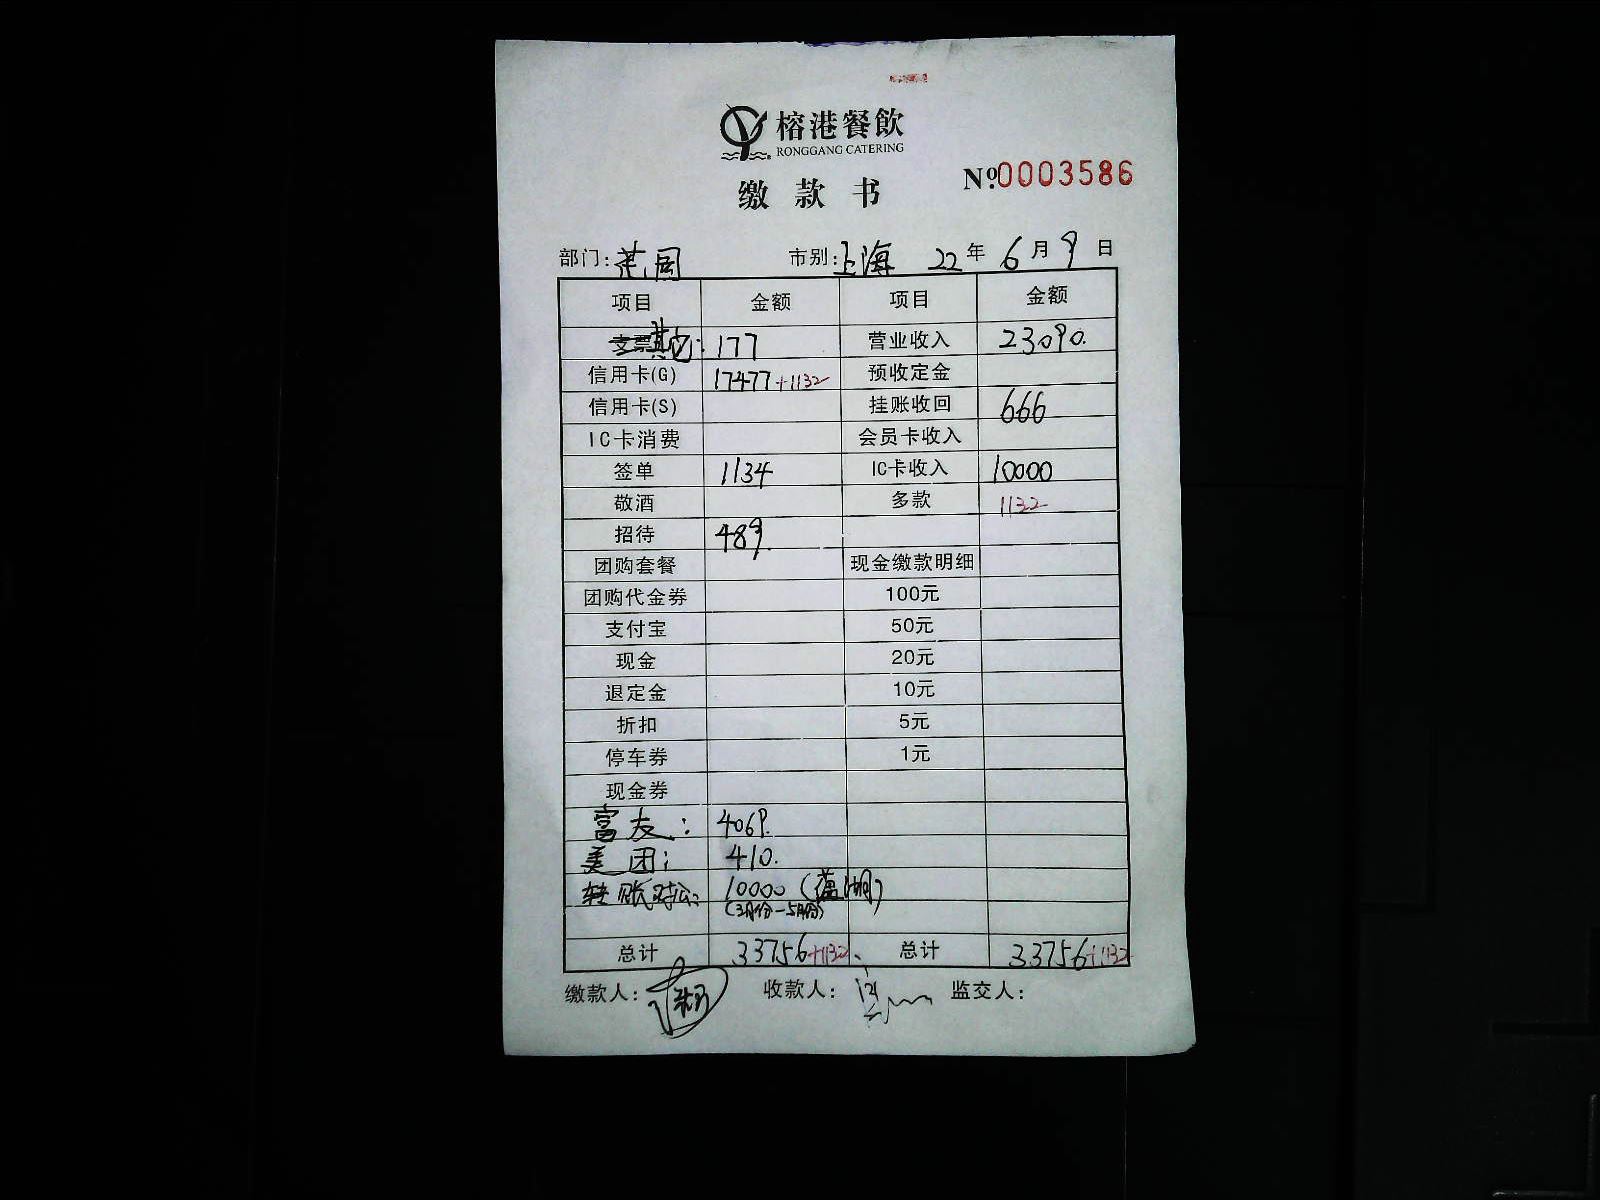 榕港餐飲
RONGGANG CATERING
缴款书
Nº:0003586
部门: 市别:上海 22年6月9日
项目 金额 项目 金额
支票其它: 177 营业收入 23090.
信用卡(G) 17477+1132 预收定金
信用卡(S) 挂账收回 666
IC卡消费 会员卡收入
签单 1134 IC卡收入 10000
敬酒 多款 1132
招待 489.
团购套餐 现金缴款明细
团购代金券 100元
支付宝 50元
现金 20元
退定金 10元
折扣 5元
停车券 1元
现金券
富友: 4069.
美团: 410.
转账对公: 10000(蕰湖)
(3月份-5月份)
总计 33756+1132 总计 33756+1132
缴款人: 收款人: 监交人: